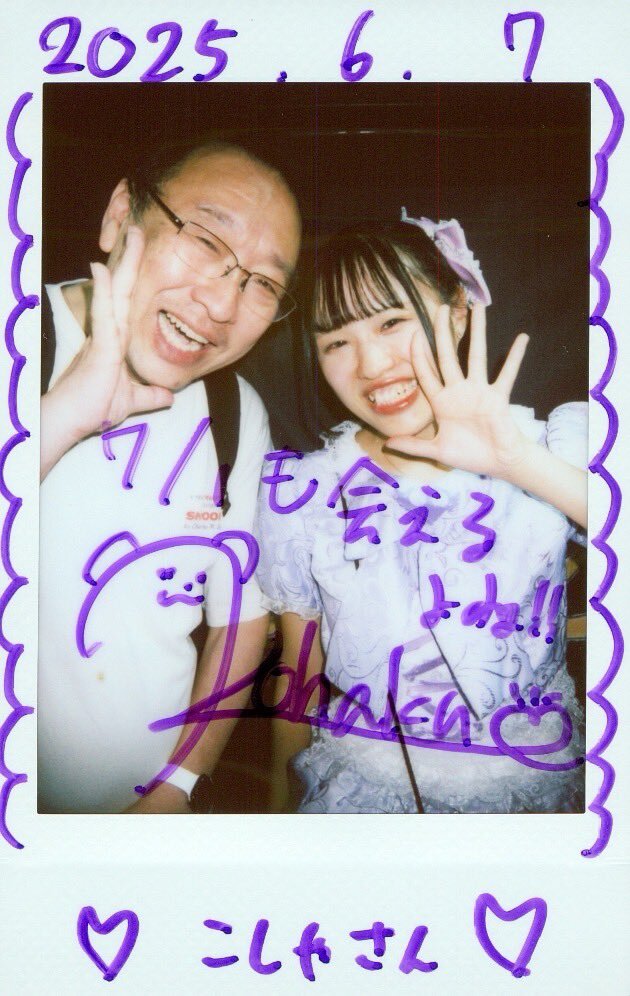 2025.6.7
SNOOP
7/1も会える
よね!!
Kohaku
こしやさん